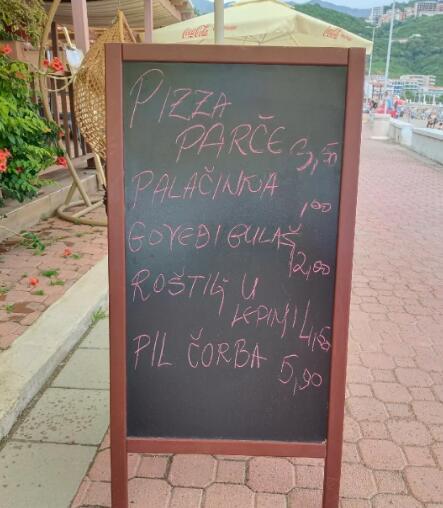 Coca-Cola
Coca-Cola
PIZZA
PARČE 3,50
PALAČINKA
1,00
GOVEĐI GULAŠ
12,00
ROŠTILJ U
LEPINJI 4,50
PIL ČORBA
5,90